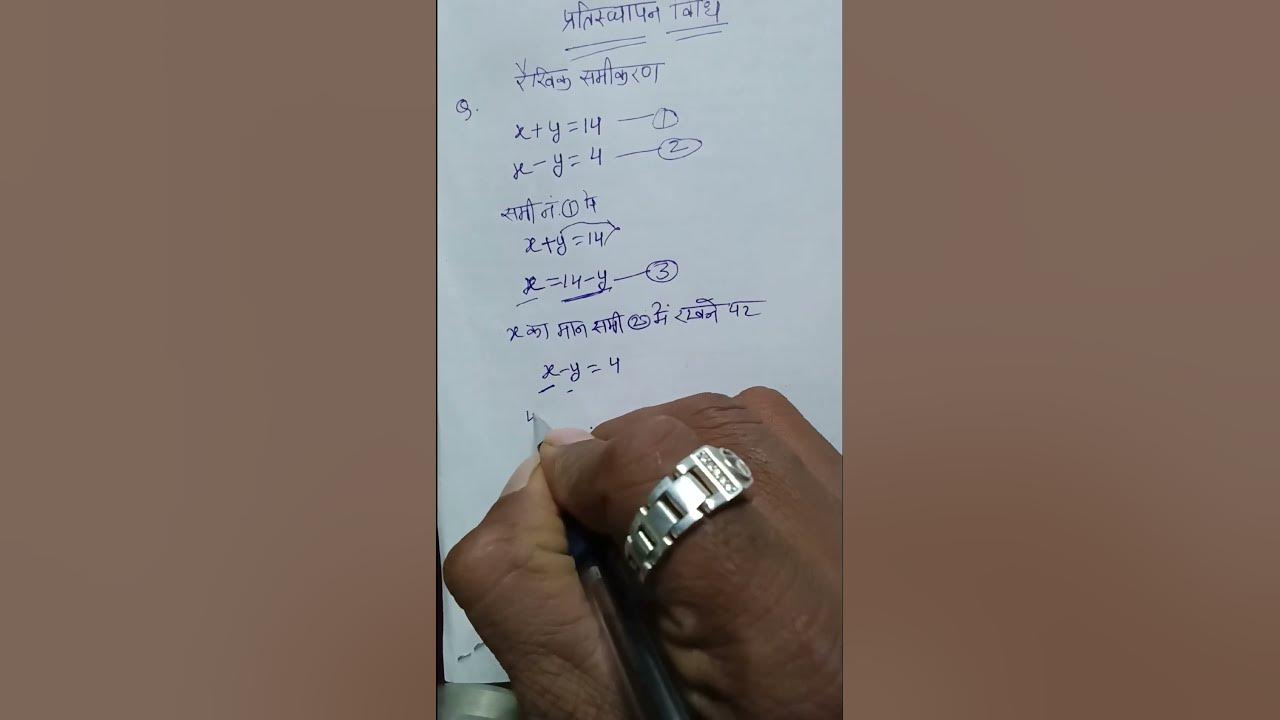 प्रतिस्थापन विधि
रैखिक समीकरण
Q.
x+y=14 — ①
x-y=4 — ②
समी नं. ① से
x+y=14
x=14-y — ③
x का मान समी ② में रखने पर
x-y=4